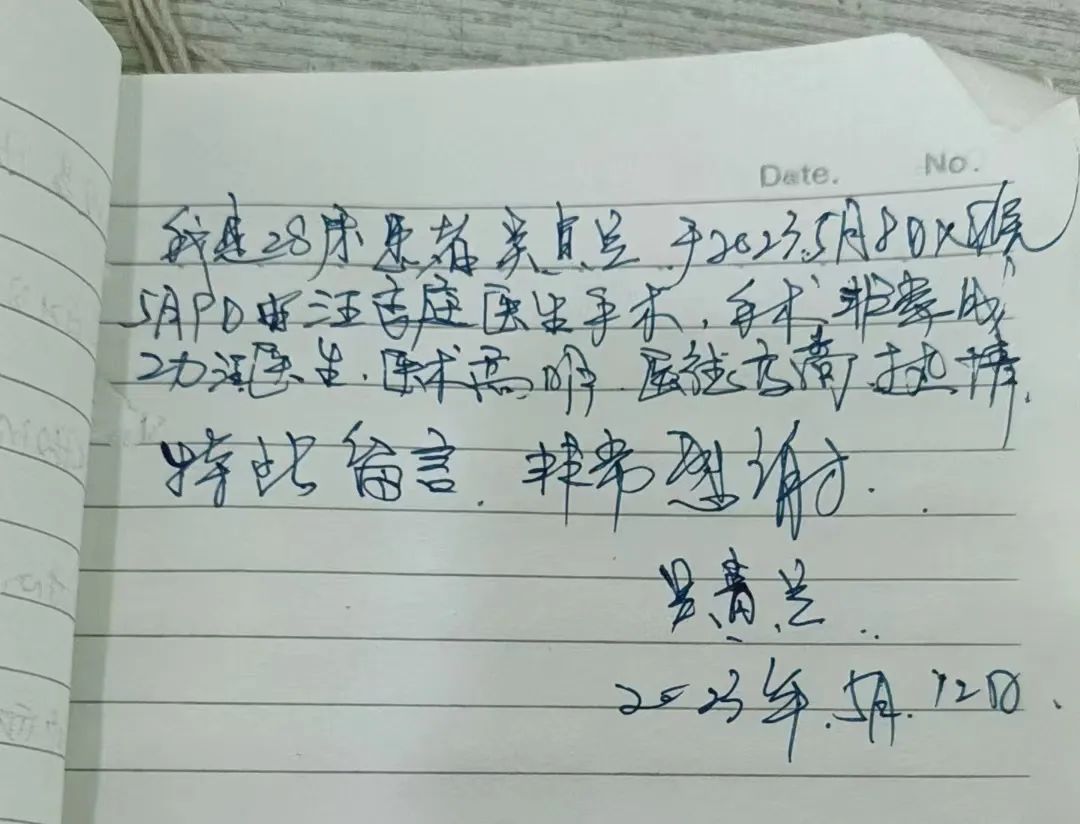 Date. No.
我是28床患者吴真兰 于2023.5月8日入院
5月9日由汪 医生手术.手术非常成
功汪医生.医术高明.医德高尚.热情.
特此留言.非常感谢.
吴 兰
2023年.5月.12日.